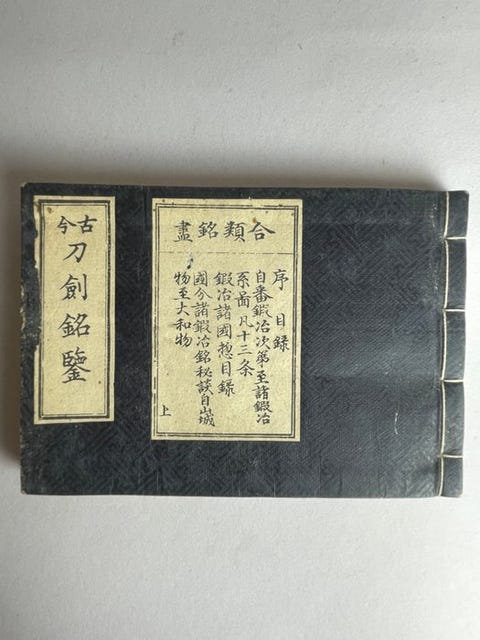 古今
刀劍銘鑒
合類銘盡
序 目録
自番鍛冶次第至諸鍛冶
系啚凡十三条
鍛冶諸國惣目録
國分諸鍛冶銘秘談自山城
物至大和物
上